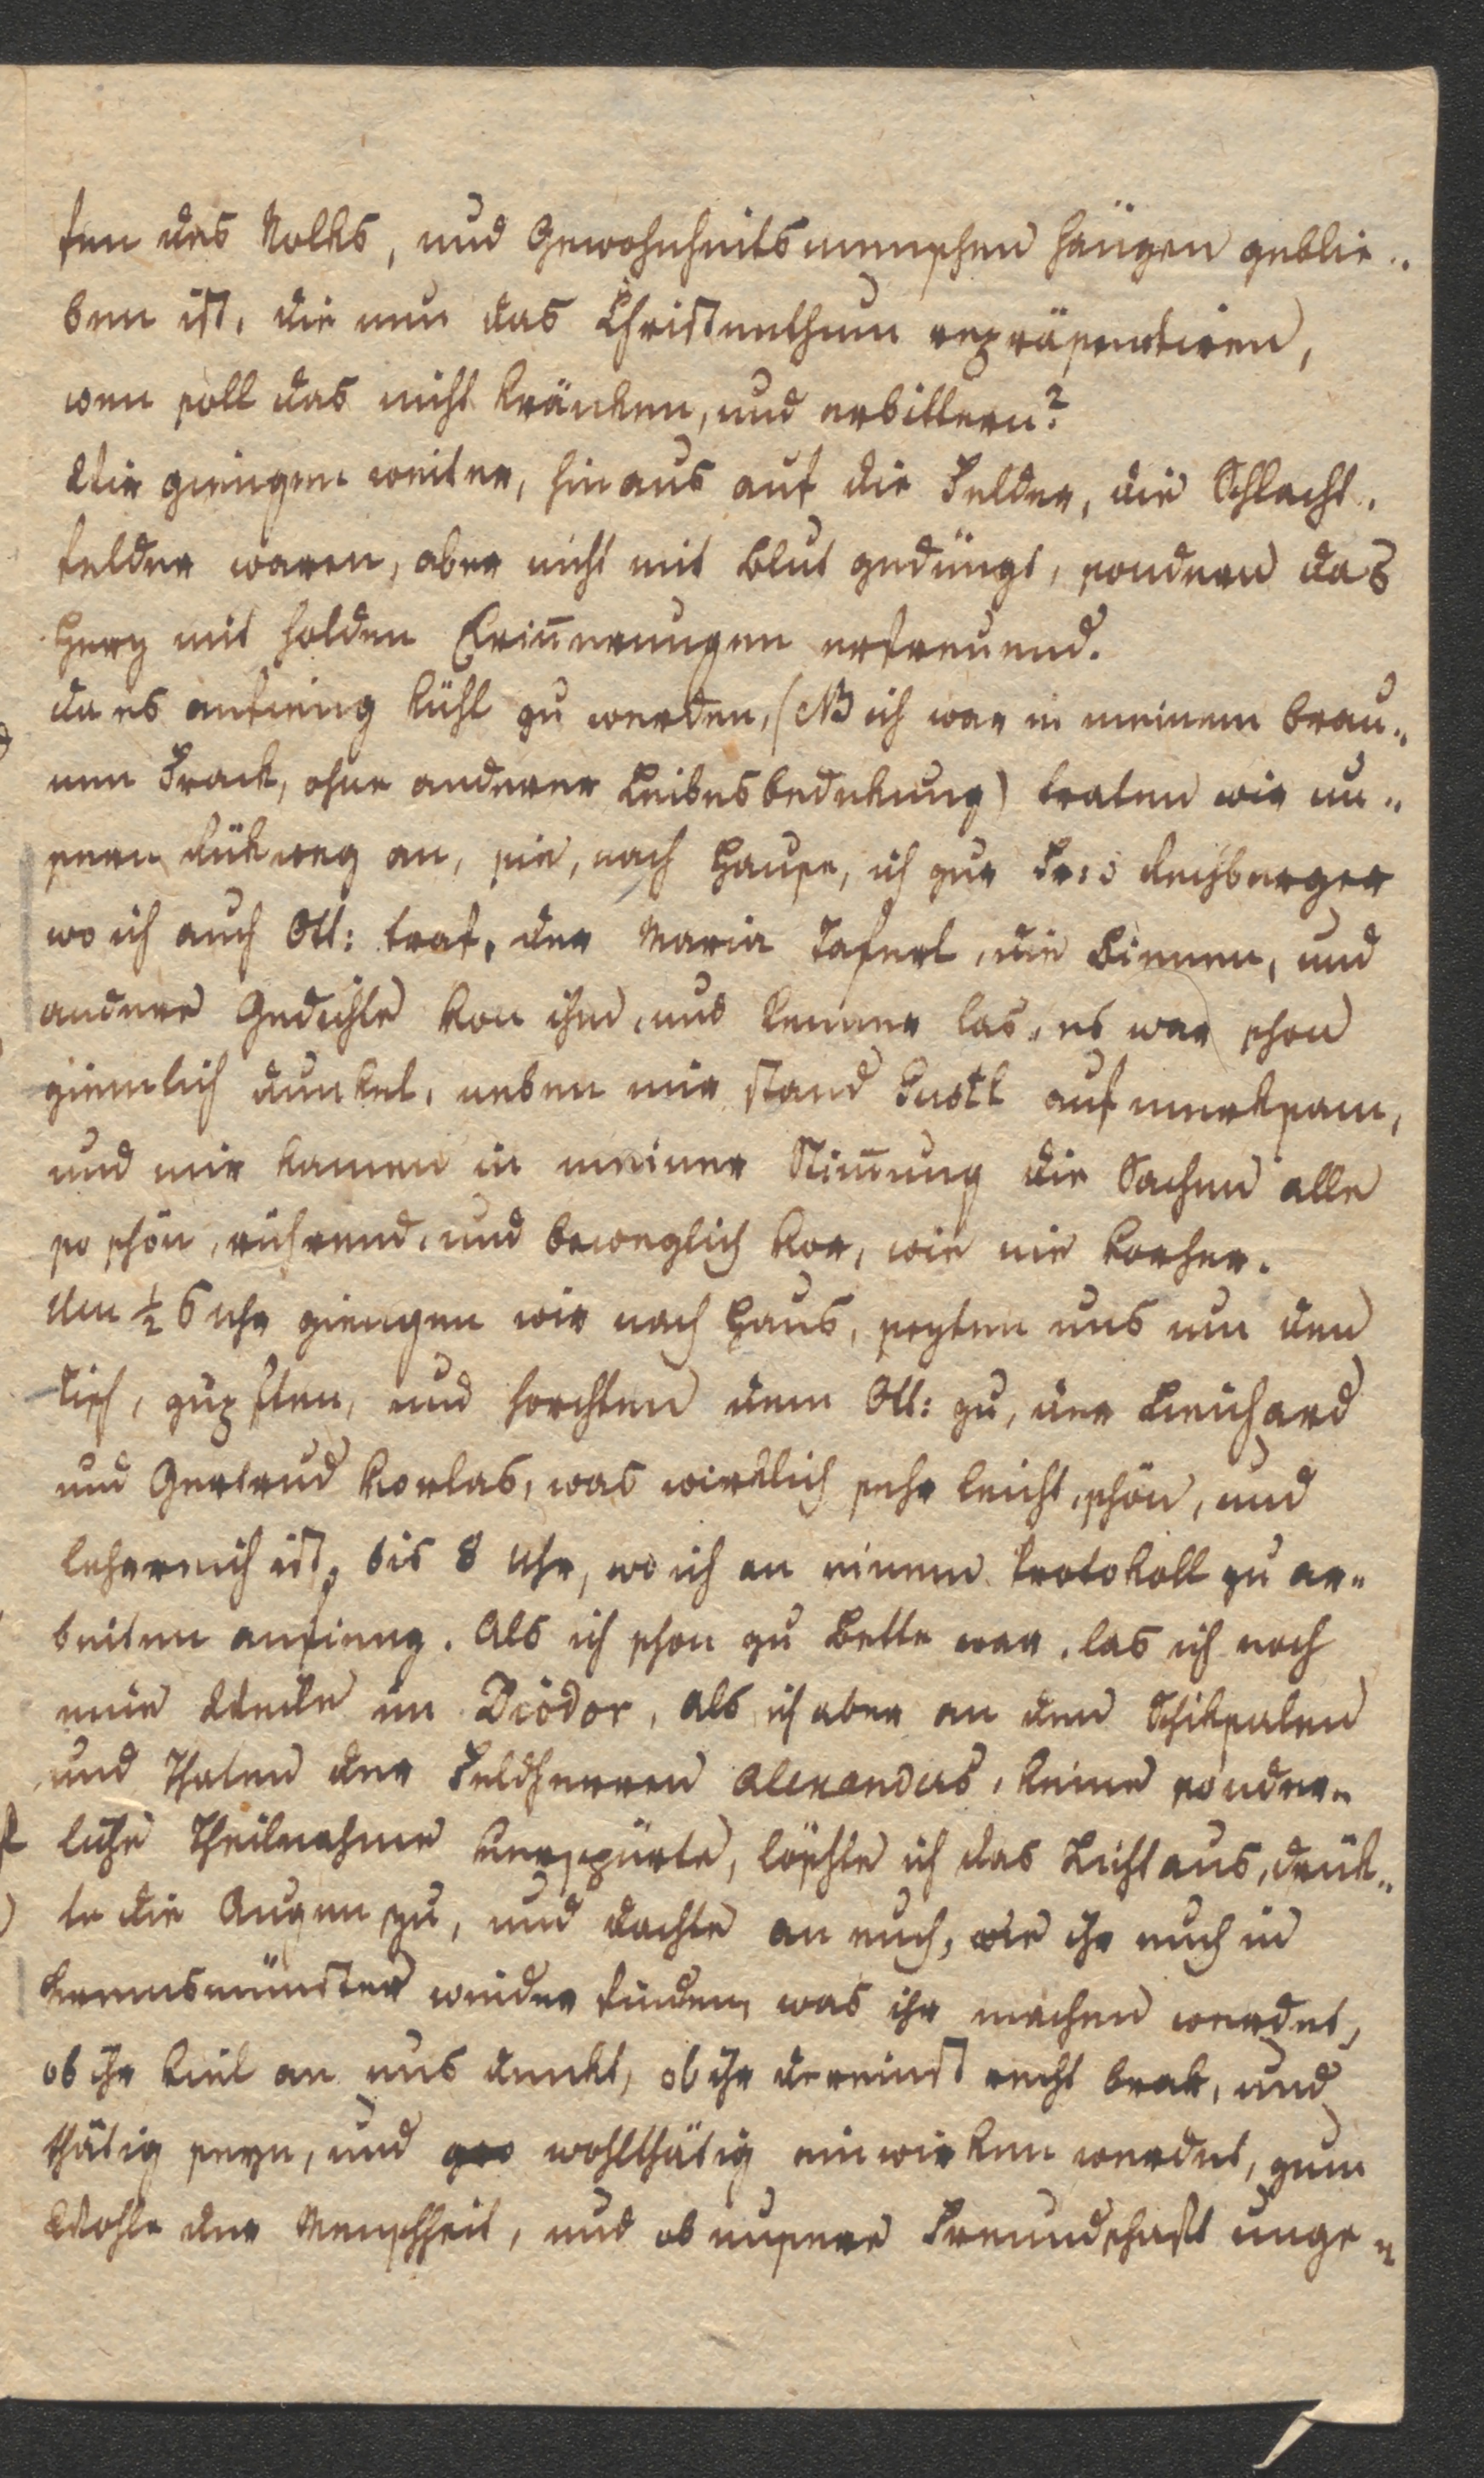 fen des Volks, und Gewohnheitsmenschen hängen geblie„
ben ist, die nun das Christenthum repräsentiren,
wen soll das nicht kränken, und erbittern?
Wir giengen weiter, hinaus auf die Felder, die Schlacht„
felder waren, aber nicht mit Blut gedüngt, sondern das
Herz mit holden Erin̄erungen erfreuend.
da es anfieng kühl zu werden, (NB ich war in meinem brau„
nen Frack, ohne anderer Leibesbedekung) traten wir un„
sern Rükweg an, sie, nach Hause, ich zur Fr:
wo ich auch Ott: traf, der Maria Taferl, die Bienen, und
andere Gedichte von ihm, und Kenner las, es war schon
ziemlich dunkel, neben mir stand Gustl aufmerksam,
und mir kamen in meiner Stim̄ung die Sachen alle
so schön, rührend, und beweglich vor, wie nie vorher.
Um ½ 6 uhr giengen wir nach Haus, sezten uns um den
Tisch, zupften, und horchten dem Ott: zu, der Lienhard
und Gertrud vorlas, was wirklich sehr leicht, schön, und
lehrreich ist, bis 8 Uhr, wo ich an einem Protokoll zu ar„
beiten anfieng. Als ich schon zu Bette war, las ich noch
eine Weile im Diodor, als ich aber an den Schiksalen
und Thaten der Feldherren Alexanders, keine sonder„
liche Theilnahme verspürte, löschte ich das Licht aus, drük„
te die Augen zu, und dachte an euch, wie ihr euch in
Kremsmünster wieder finden, was ihr machen werdet,
ob ihr viel an uns denkt, ob ihr dereinst recht brav, und
thätig seyn, und wohlthätig einwirken werdet, zum
Wohle der Menschheit, und ob unsere Freundschaft unge„